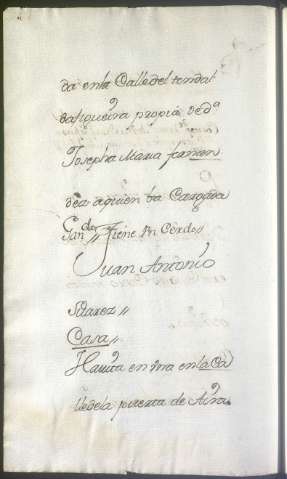 da enla Calle del tendal
da figueira propia de dª
Josepha Maria
dea aquien ba Cargada
Ganᵈᵒ // Tiene un Cerdo //
Juan Antonio
Suarez //
Casa //
Havita en una en la Ca
lle de la puerta de Aira